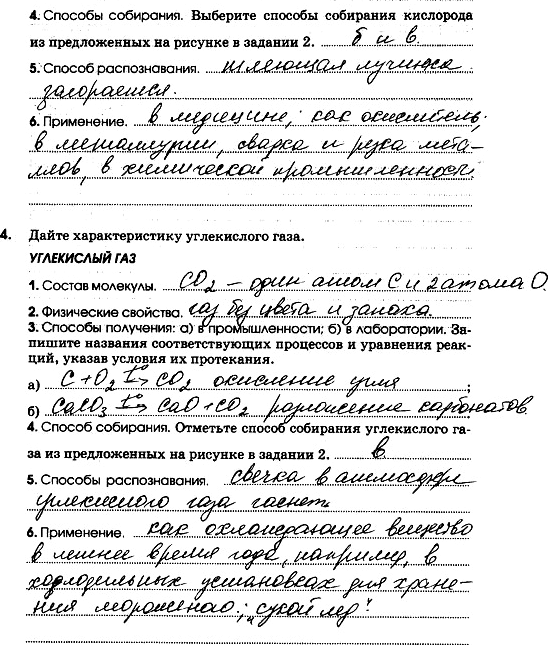 4. Способы собирания. Выберите способы собирания кислорода
из предложенных на рисунке в задании 2. б и в.
5. Способ распознавания. тлеющая лучинка
загорается.
6. Применение. в медицине; как окислитель;
в металлургии, сварка и резка метал-
лов, в химической промышленности.
4. Дайте характеристику углекислого газа.
УГЛЕКИСЛЫЙ ГАЗ
1. Состав молекулы. CO2 – один атом C и 2 атома O.
2. Физические свойства. газ без цвета и запаха.
3. Способы получения: а) в промышленности; б) в лаборатории. За-
пишите названия соответствующих процессов и уравнения реак-
ций, указав условия их протекания.
а) C + O2 t°→ CO2 окисление угля ;
б) CaCO3 t°→ CaO + CO2 разложение карбонатов.
4. Способ собирания. Отметьте способ собирания углекислого га-
за из предложенных на рисунке в задании 2. в
5. Способы распознавания. свечка в атмосфере
углекислого газа гаснет.
6. Применение. как охлаждающее вещество
в летнее время года, например, в
холодильных установках для хране-
ния мороженого; „сухой лед“